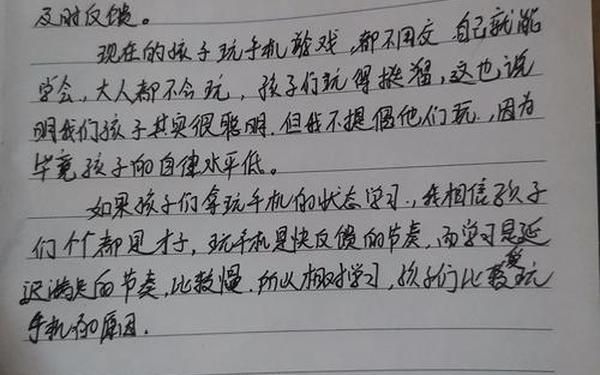 及时反馈。
现在的孩子玩手机游戏,都不用交 自己就能
学会,大人都不会玩,孩子们玩得挺溜,这也说
明我们孩子其实很聪明.但我不提倡他们玩,因为
毕竟孩子的自律水平低。
如果孩子们拿玩手机的状态学习,我相信孩子
们个个都是才子,玩手机是快反馈的节奏,而学习是延
迟满足的节奏,比较慢.所以相对学习,孩子们比较爱玩
手机的原因.